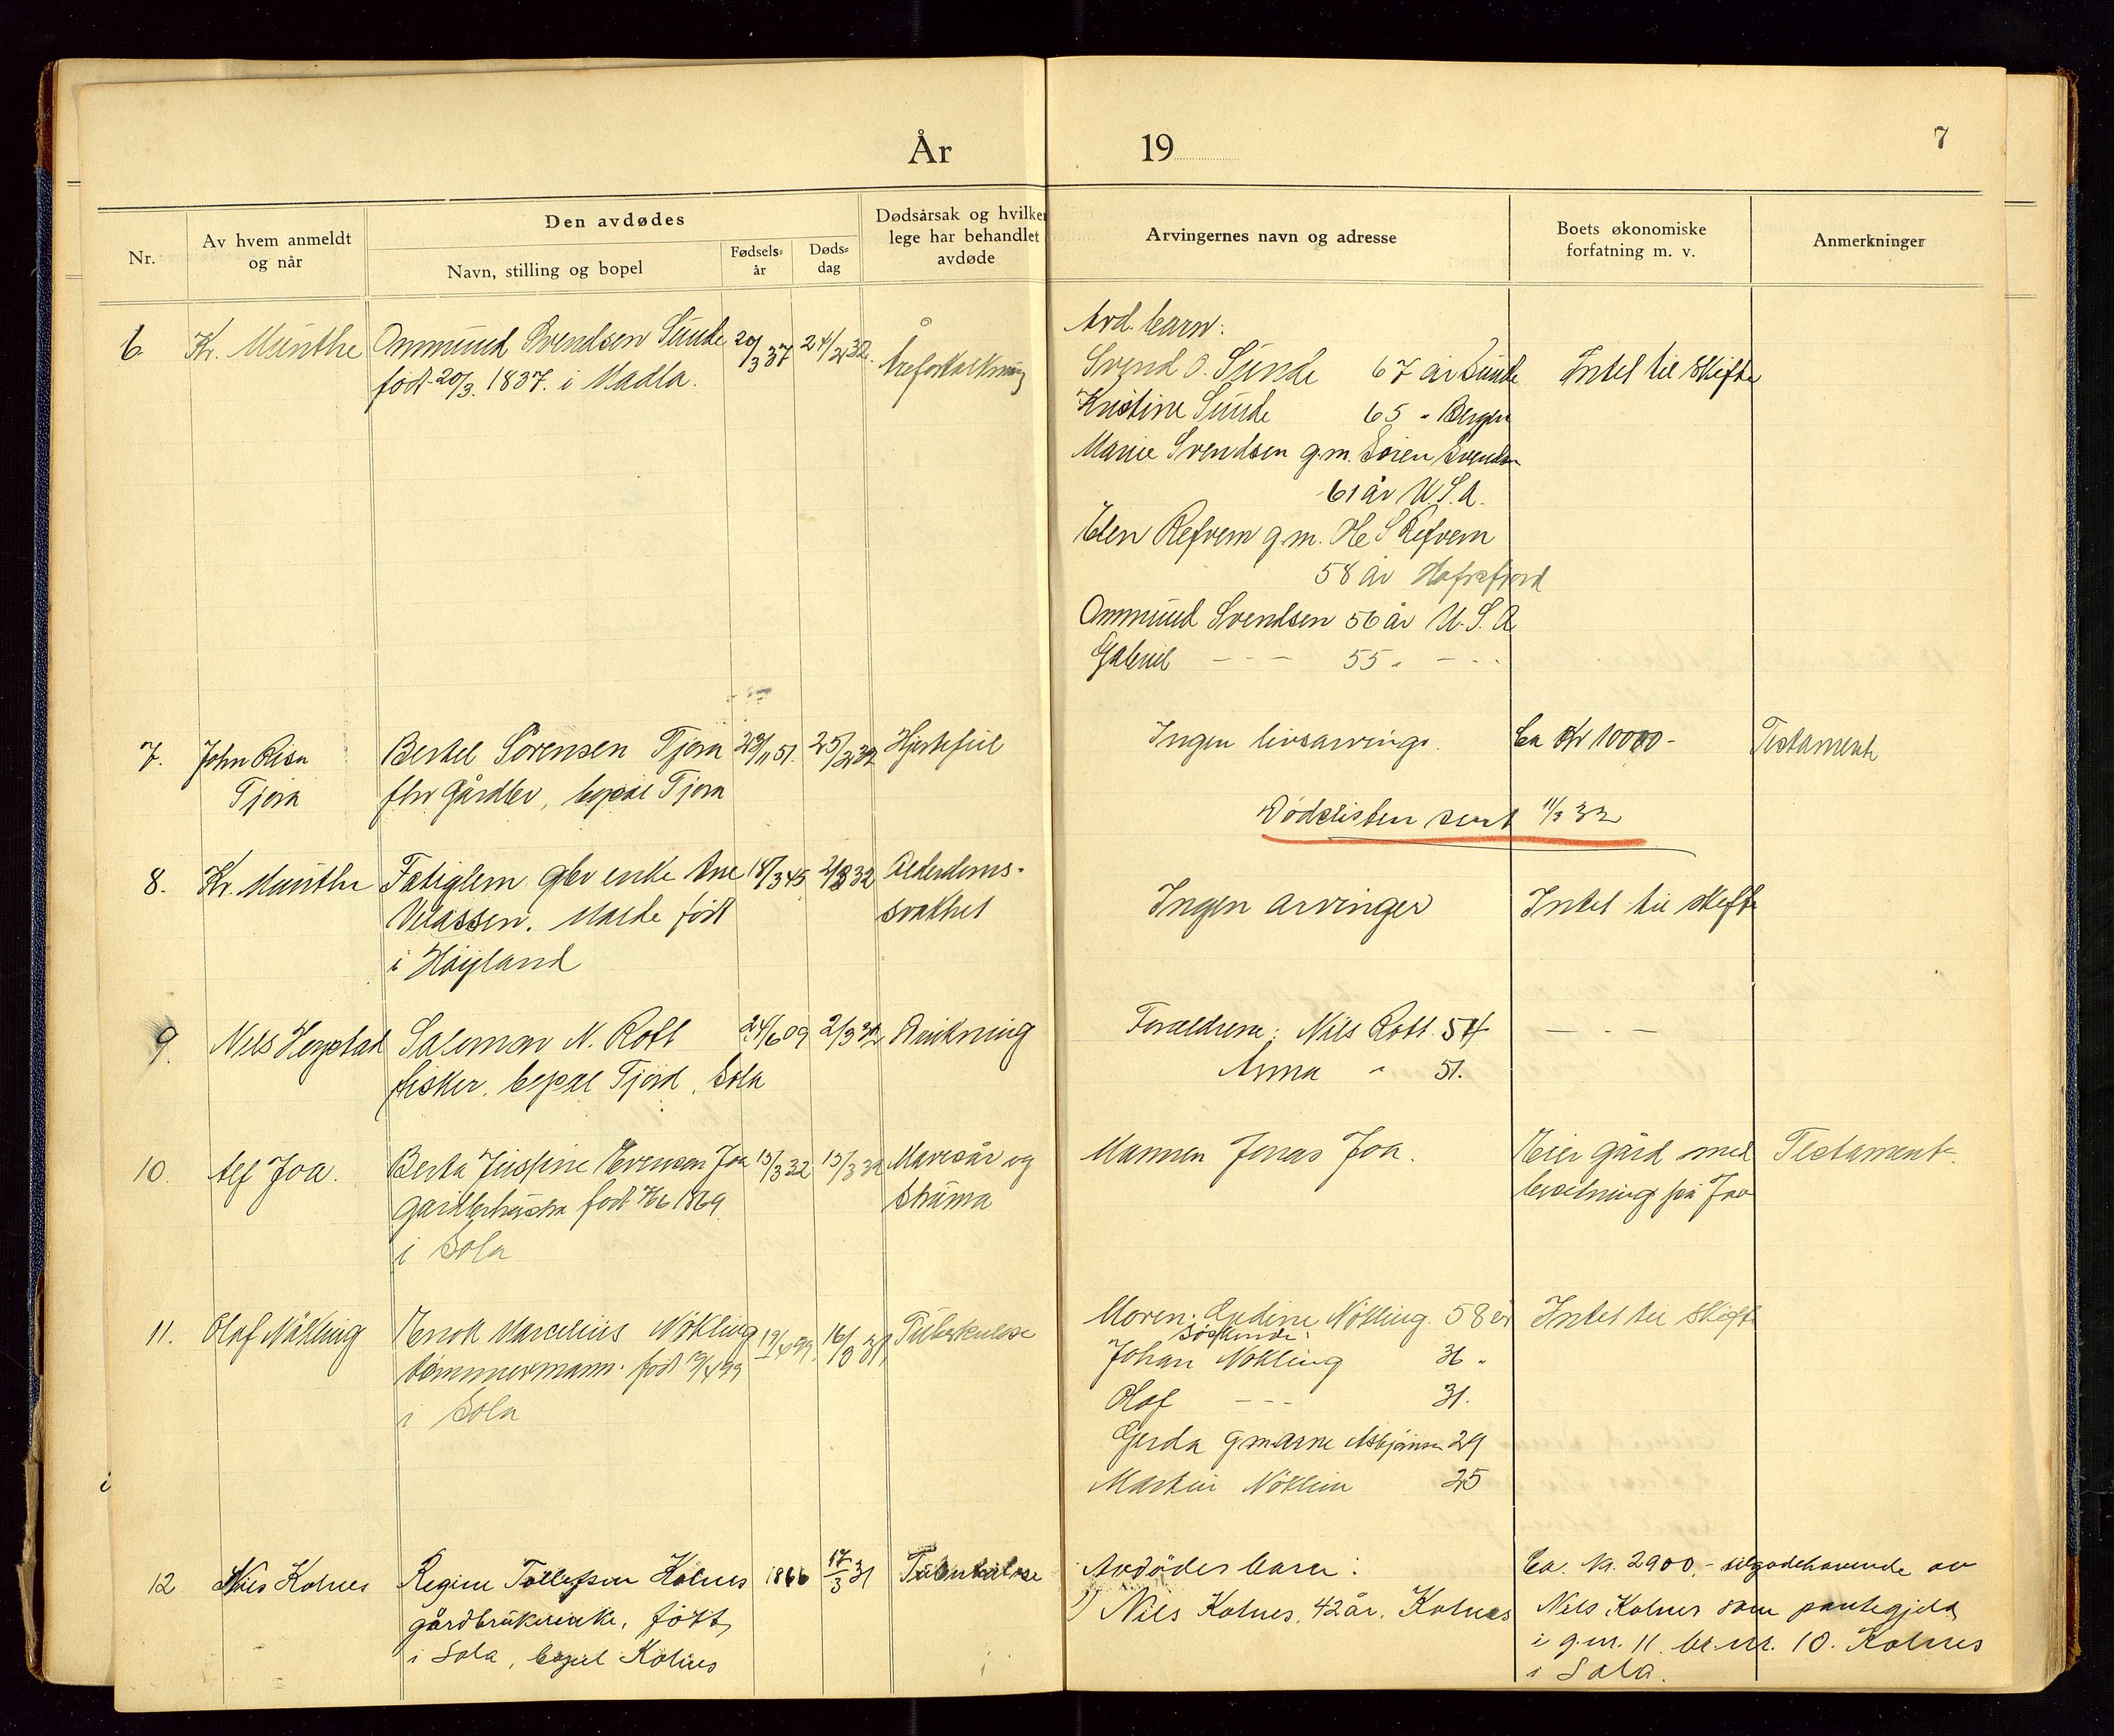 År 19
7
Nr.
Av hvem anmeldt og når
Den avdødes
Navn, stilling og bopel
Fødsels-år
Døds-dag
Dødsårsak og hvilken lege har behandlet avdøde
Arvingernes navn og adresse
Boets økonomiske forfatning m. v.
Anmerkninger
6 Kr. Munthe Ommund Svendsen Sunde 20/3 37 24/2 32. Åreforkalkning
født 20/3. 1837. i Madla.
Avd. barn:
Svend O. Sunde 67 år Sunde Intet til skifte
Kristine Sunde 65 " Bergen
Marie Svendsen g.m. Sören Svendsen
61 år U.S.A.
Elen Refvem g.m. Ole S Refvem
58 år Hafrsfjord
Ommund Svendsen 56 år U.S.A
Gabriel - - - 55 " - - -
7. John Risa Bertel Sörensen Tjora 23/11 51. 25/2 32 Hjertefeil Ingen livsarvinge. Ca Kr 10000- Testamente
Tjora fhv Gårdbr, bopæl Tjora
Dødslisten sent 11/3 32
8. Kr. Munthe Fatiglem gbr enke Ane 18/3 45 2/3 32 Alderdoms-
født svakhet Ingen arvinger Intet til skifte
i Høyland
9. Nils Hegstad Salomon N. Rott 24/6 09 2/3 32 Drukning Foreldrene: Nils Rott 54 - - -
fisker, bopæl Tjord, Sola Anna " 51.
10. Alf Joa. Berta Josefine Evensen Joa 15/3 32 15/3 32 Mavesår og Mannen Jonas Joa. Eier gård med Testament.
født 1869 struma besetning på Joa
i Sola
11. Olaf Nökling Enok Marcelius Nökling 19/4 99 16/3 31 Tuberkulose Moren: Andine Nökling. 58 år Intet til skifte
tömmermann. født 19/4 99 søskende:
i Sola Johan Nökling 36 "
Olaf - - - 31.
Gerda g m Arne Asbjörnsen 29
Martin Nöklin 25
12 Nils Kolnes Regine Tollefsen Kolnes 1866 17/3 31 Tuberkulose Avdødes barn: Ca. Kr. 2900,- tilgodehavende av
gårdbrukerenke, født 1) Nils Kolnes, 42 år. Kolnes Nils Kolnes som pantegjeld
i Sola, bopel Kolnes i g.nr. 11 br.nr. 10. Kolnes
i Sola.